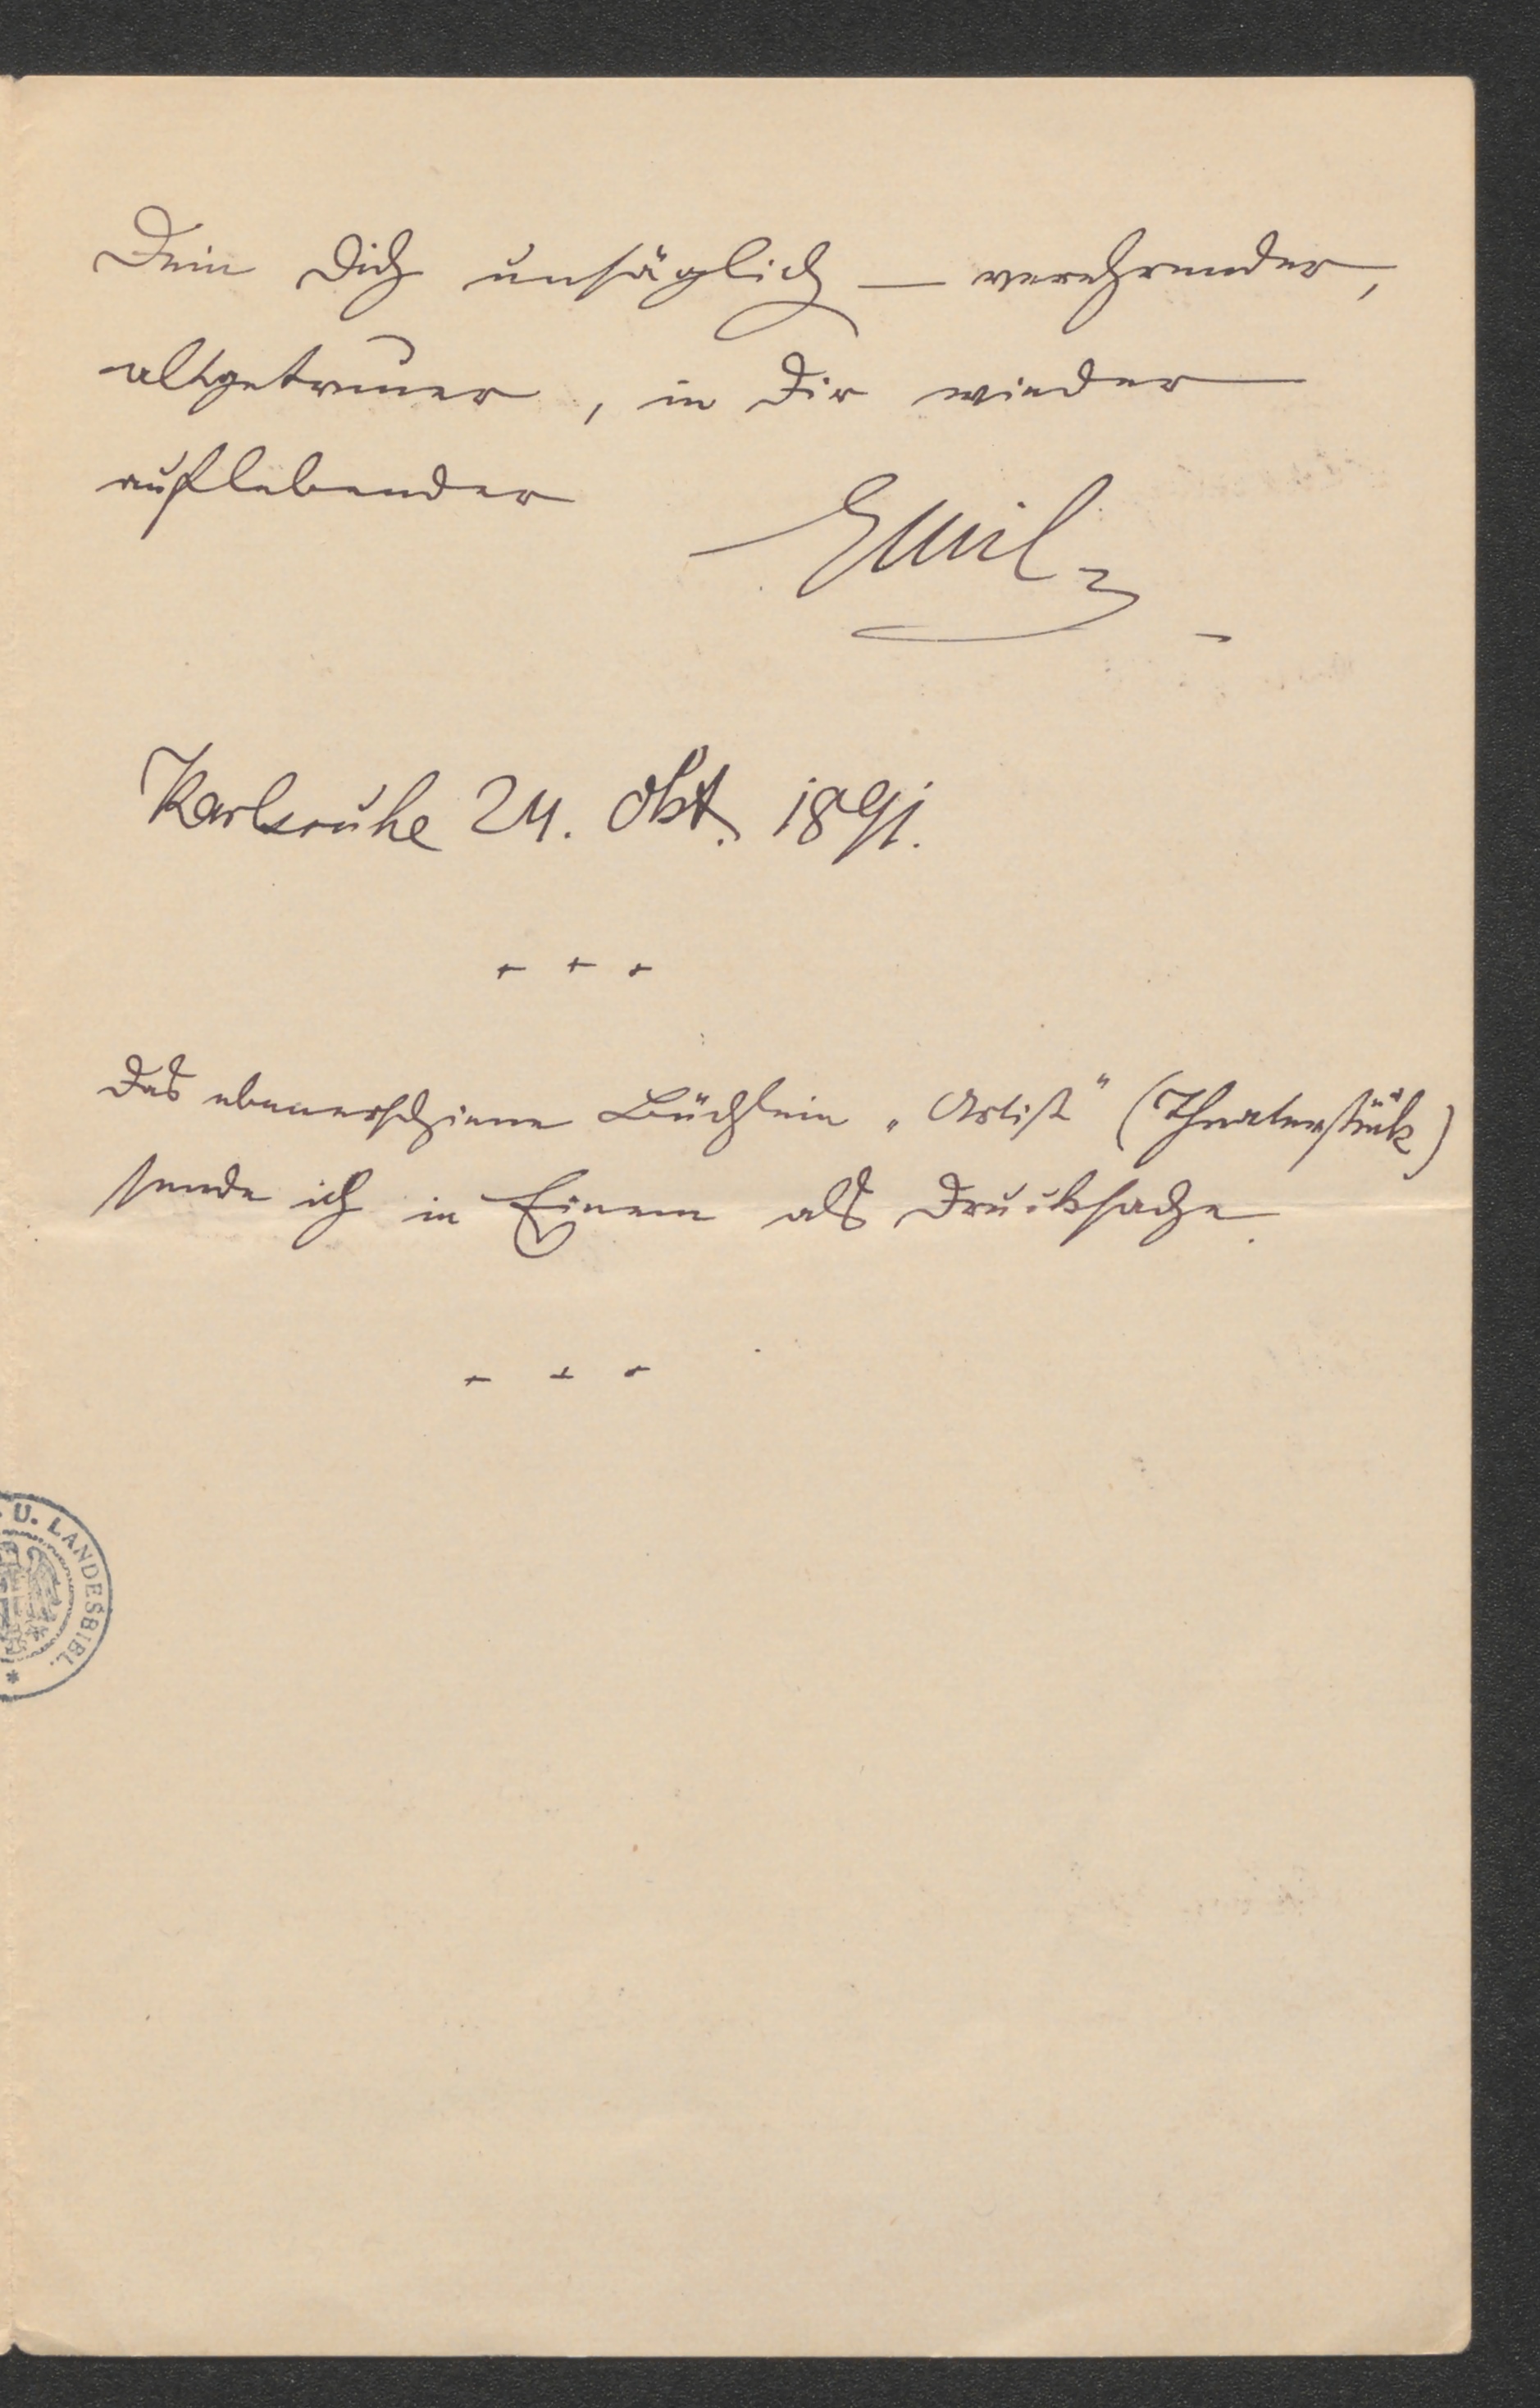 Dein Dich unsäglich – verehrender,
altgetreuer, in Dir wieder
auflebender
Emil
Karlsruhe 24. Okt. 1891.
+ + +
Das ebenerschiene Büchlein „Artist" (Theaterstück)
sende ich in Einem als Drucksache.
+ + +
U. LANDESBIBL. *